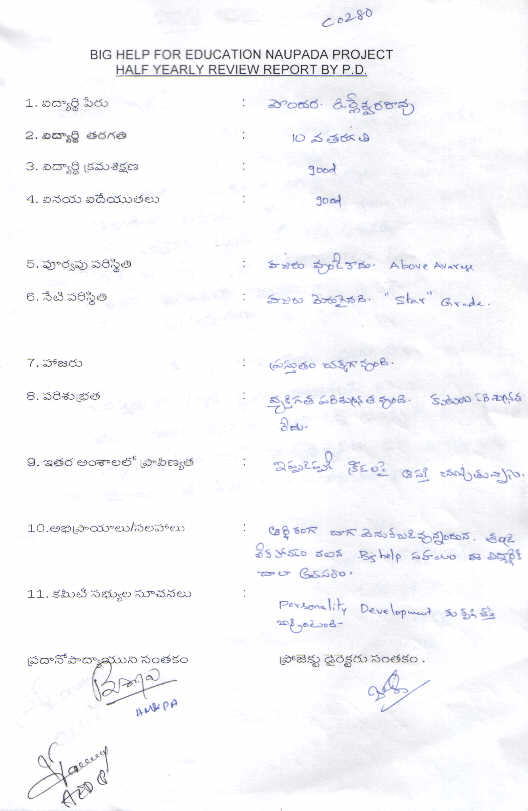 C0280
BIG HELP FOR EDUCATION NAUPADA PROJECT
HALF YEARLY REVIEW REPORT BY P.D.
1. విద్యార్థి పేరు :
2. విద్యార్థి తరగతి : 10 వ తరగతి
3. విద్యార్థి క్రమశిక్షణ : good
4. వినయ విదేయుతలు : good
5. పూర్వపు పరిస్థితి : హాజరు వుండేకాదు. Above Avarage
6. నేటి పరిస్థితి : హాజరు మెరుగైనది. "Star" Grade.
7. హాజరు : ప్రస్తుతం చక్కగా వుంది.
8. పరిశుభ్రత : వ్యక్తిగత పరిశుభ్రత వుంది.
లేదు.
9. ఇతర అంశాలలో ప్రావిణ్యత : ఇప్పుడిప్పుడే ఆసక్తి చూపుతున్నాడు.
10.అభిప్రాయాలు/సలహాలు : ఆర్థికంగా బాగా వెనుకబడివున్నందున.
Big help సహాయం ఈ విద్యార్థికి
చాలా అవసరం.
11. కమిటీ సభ్యుల సూచనలు : Personality Development
ప్రదానోపాద్యాయుని సంతకం ప్రాజెక్టు డైరెక్టరు సంతకం.